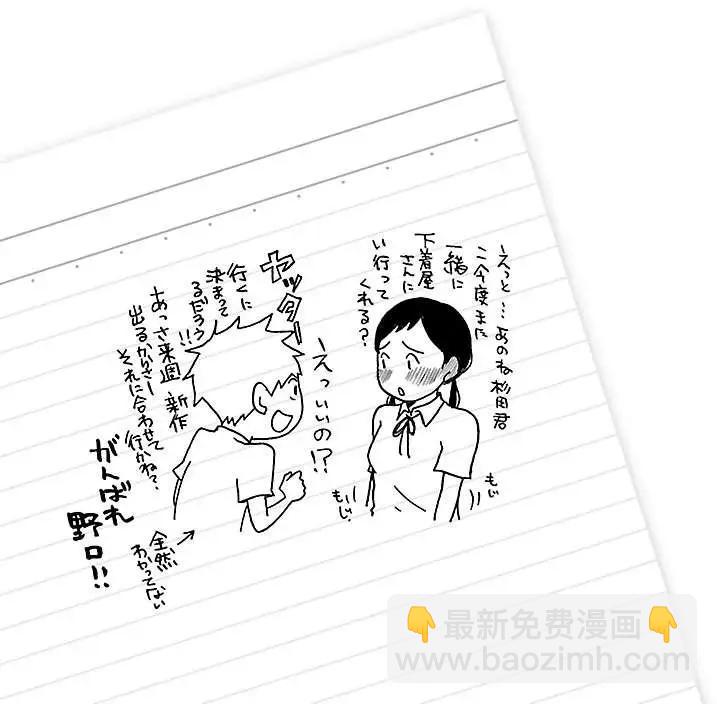 えっと…あのね 杉田君
こ、今度また
一緒に
下着屋
さんに
い行って
くれる?
もじ
もじ
えっいいの!?
ヤッター
行くに
決まって
るだろう!!
あっさ来週 新作
出るからさー
それに合わせて行かね?
全然
わかってない
がんばれ
野口!!
👇最新免费漫画👇
www.baozimh.com